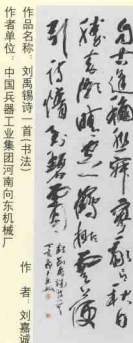 自古逢秋悲寂寥我言秋日
胜春朝晴空一鹤排云上便
引诗情到碧霄
作品名称：刘禹锡诗一首(书法)
作者单位：中国兵器工业集团河南向东机械厂
作　者：刘嘉诚